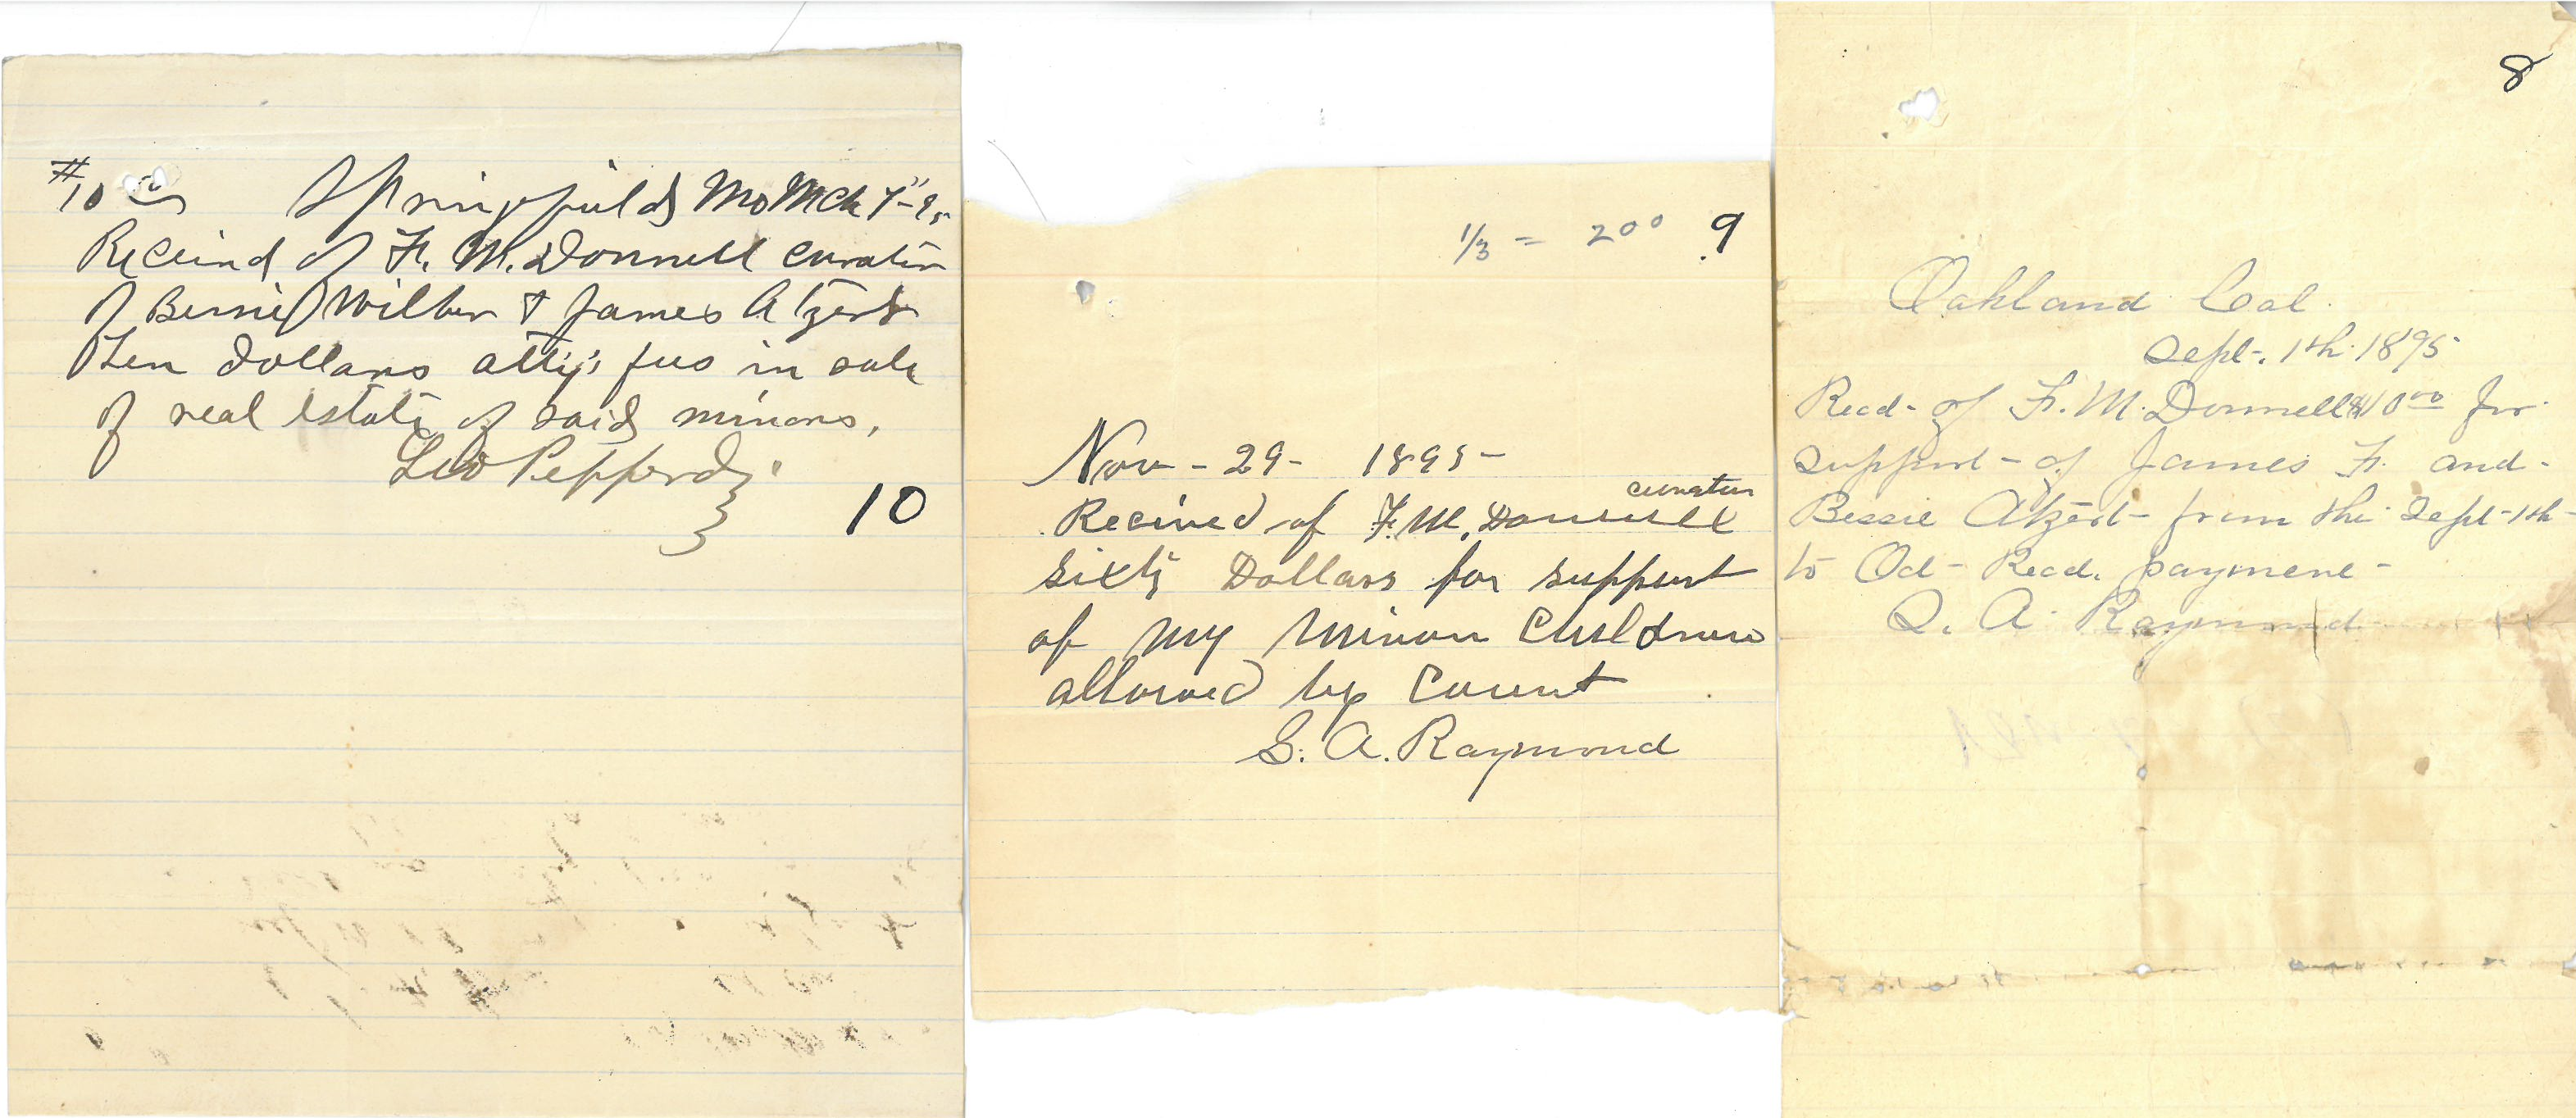 #10 00 Springfield Mo Mch 7"-95
Received of F. M. Donnell curator
of Bessie Wilber & James Atzert
ten dollars atty's fees in sale
of real estate of said minors,
Leo Pepperd
10
1/3 = 20 00 9
Nov - 29 - 1895 -
curator
Recived of F. M. Donnell
Sixty Dollars for support
of my Minor Children
allowed by Court
S. A. Raymond
8
Oakland Cal.
Sept. 1th. 1895
Recd. of F. M. Donnell $10 00 for
support of James F. and
Bessie Atzert from the Sept 1th
to Oct - Recd. payment -
S. A. Raymond